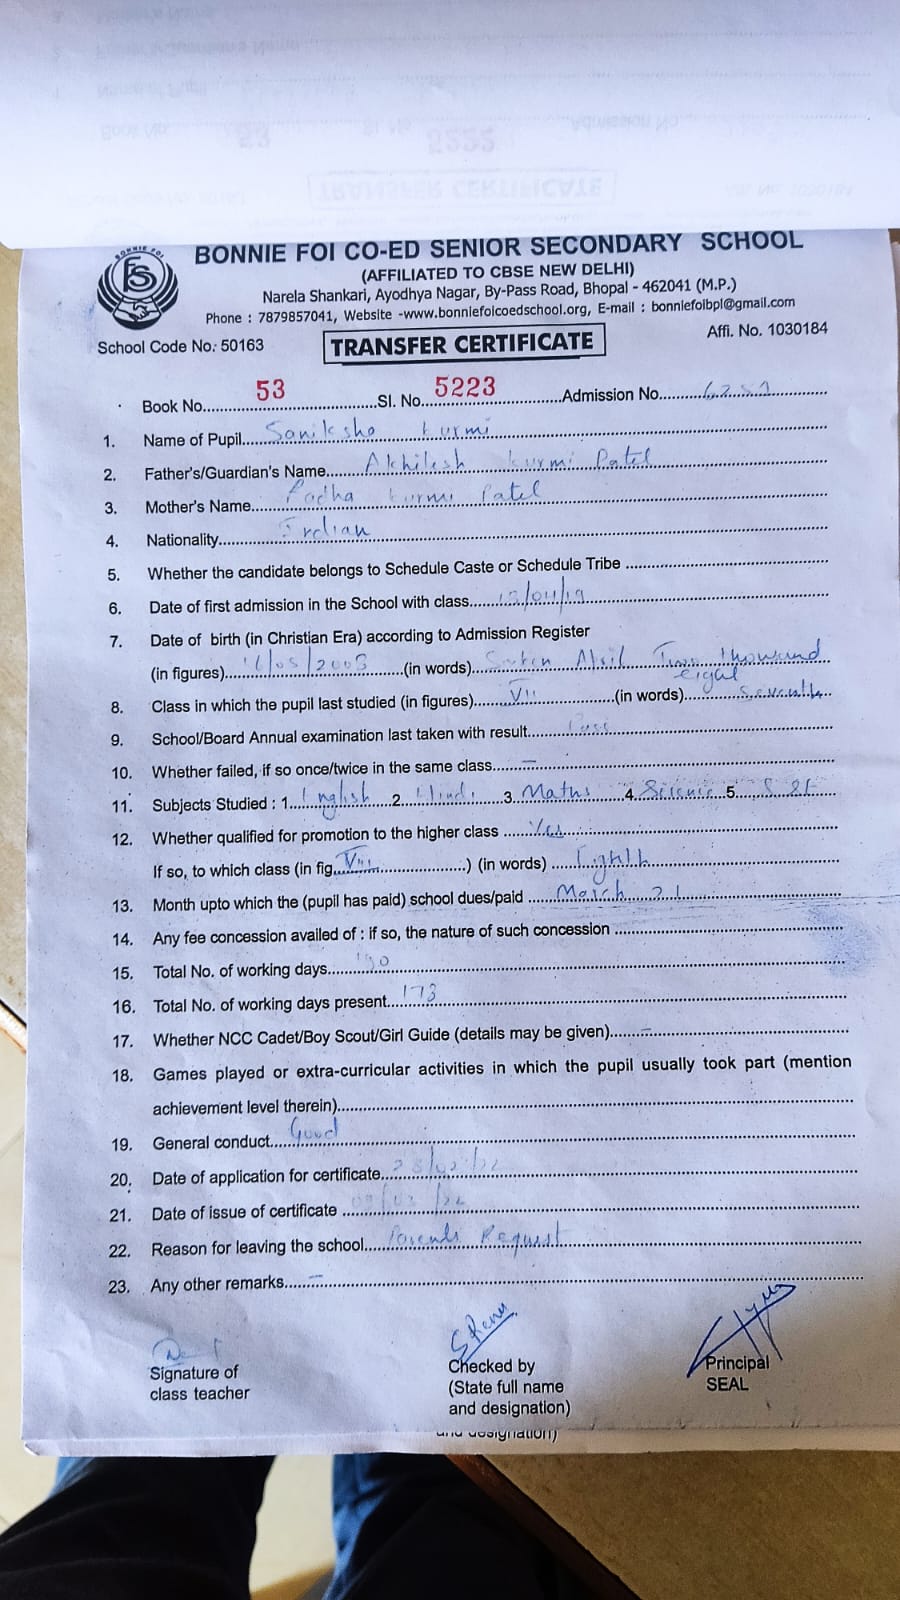 BONNIE FOI CO-ED SENIOR SECONDARY SCHOOL
(AFFILIATED TO CBSE NEW DELHI)
Narela Shankari, Ayodhya Nagar, By-Pass Road, Bhopal - 462041 (M.P.)
Phone : 7879857041, Website -www.bonniefoicoedschool.org, E-mail : bonniefoibpl@gmail.com
School Code No.: 50163 TRANSFER CERTIFICATE Affi. No. 1030184
Book No. 53 Sl. No. 5223 Admission No.
1. Name of Pupil Kurmi
2. Father's/Guardian's Name Akhilesh Kurmi Patel
3. Mother's Name Radha Kurmi Patel
4. Nationality Indian
5. Whether the candidate belongs to Schedule Caste or Schedule Tribe
6. Date of first admission in the School with class
7. Date of birth (in Christian Era) according to Admission Register
(in figures) (in words) Two thousand
8. Class in which the pupil last studied (in figures) VII (in words)
9. School/Board Annual examination last taken with result Pass
10. Whether failed, if so once/twice in the same class –
11. Subjects Studied : 1. English 2. Hindi 3. Maths 4. Science 5.
12. Whether qualified for promotion to the higher class Yes
If so, to which class (in fig. VIII) (in words)
13. Month upto which the (pupil has paid) school dues/paid March 21
14. Any fee concession availed of : if so, the nature of such concession
15. Total No. of working days
16. Total No. of working days present 173
17. Whether NCC Cadet/Boy Scout/Girl Guide (details may be given) –
18. Games played or extra-curricular activities in which the pupil usually took part (mention
achievement level therein)
19. General conduct Good
20. Date of application for certificate
21. Date of issue of certificate
22. Reason for leaving the school Request
23. Any other remarks –
Signature of
class teacher
Checked by
(State full name
and designation)
Principal
SEAL
and designation)